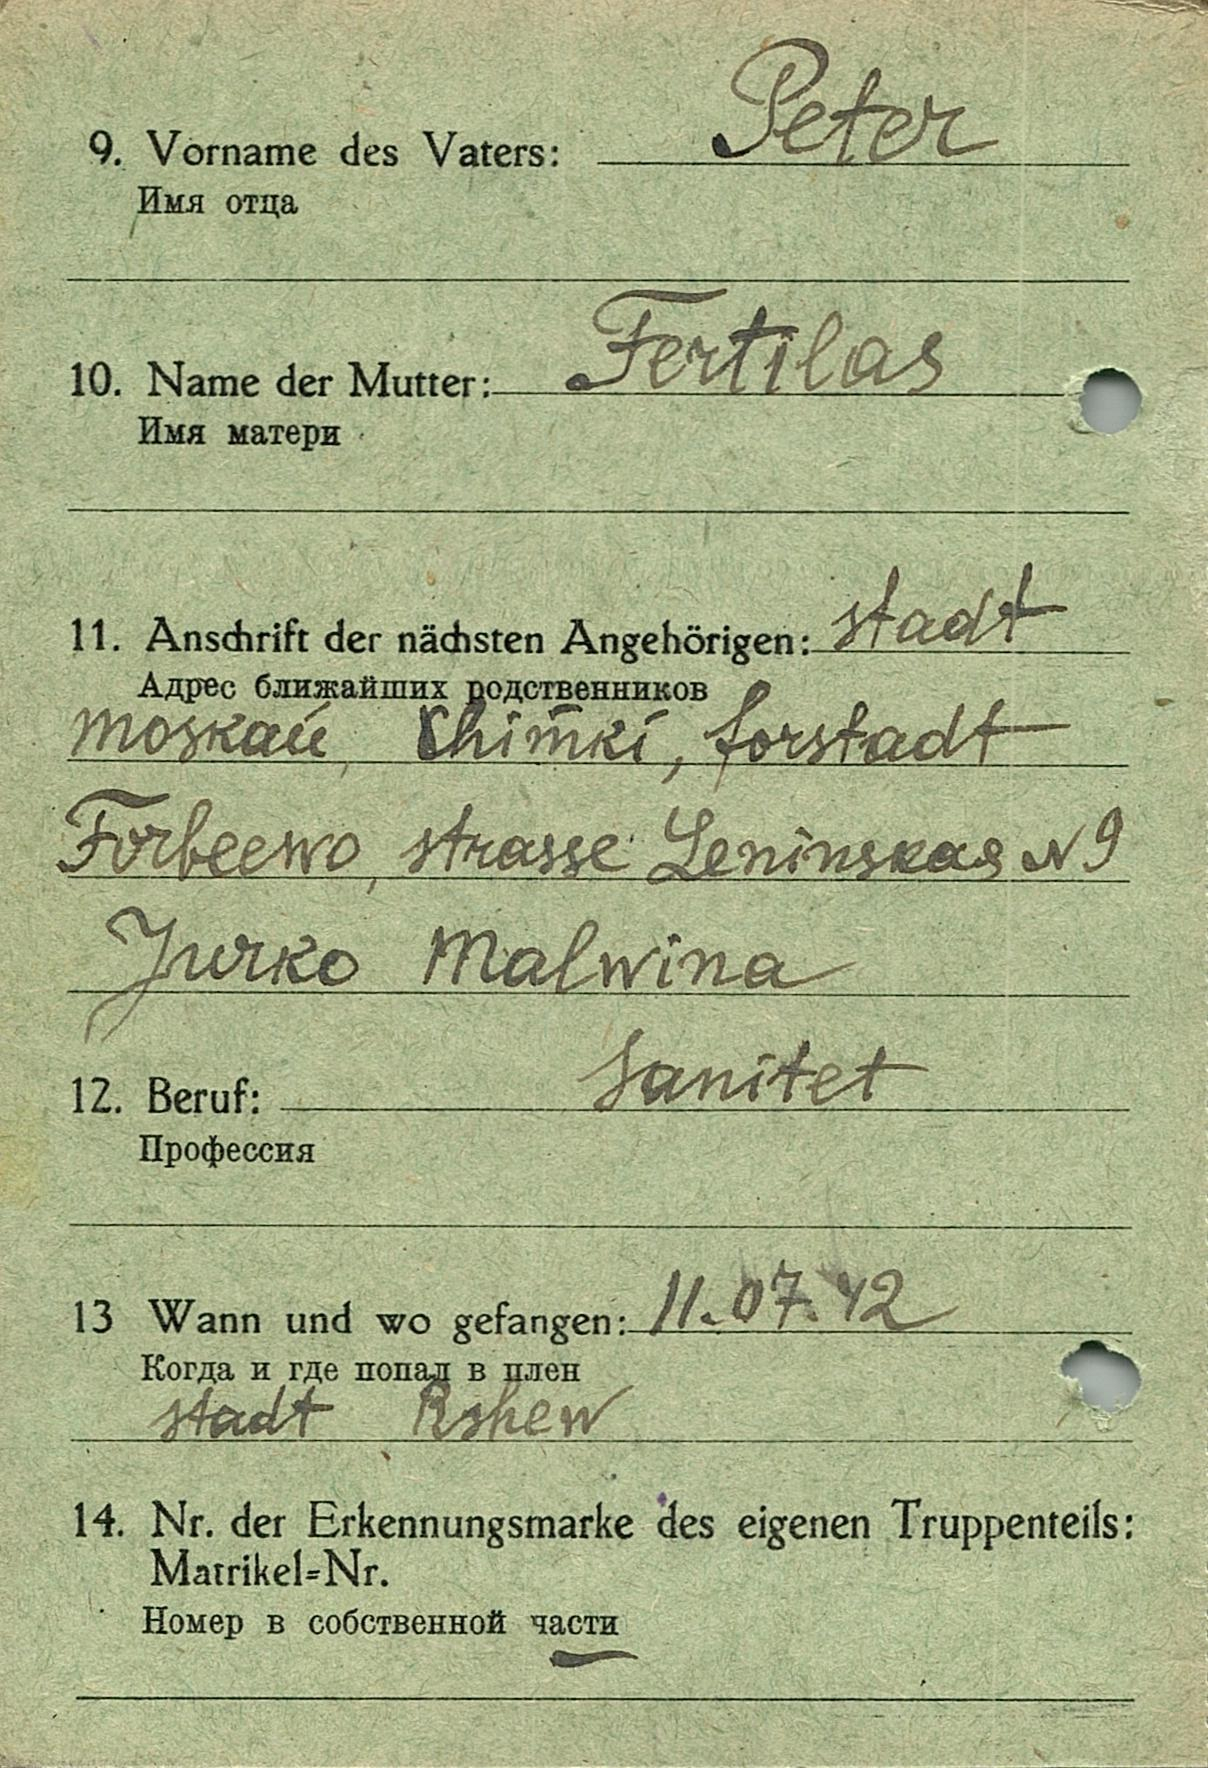 9. Vorname des Vaters: Peter
Имя отца
10. Name der Mutter: Fertilas
Имя матери
11. Anschrift der nächsten Angehörigen: stadt
Адрес ближайших родственников
Moskau, Chimki, forstadt
Forbeewo, strasse Leninskas N 9
Jurko Malwina
12. Beruf: Sanitet
Профессия
13 Wann und wo gefangen: 11.07.42
Когда и где попал в плен
stadt Rshew
14. Nr. der Erkennungsmarke des eigenen Truppenteils:
Matrikel=Nr.
Номер в собственной части
—